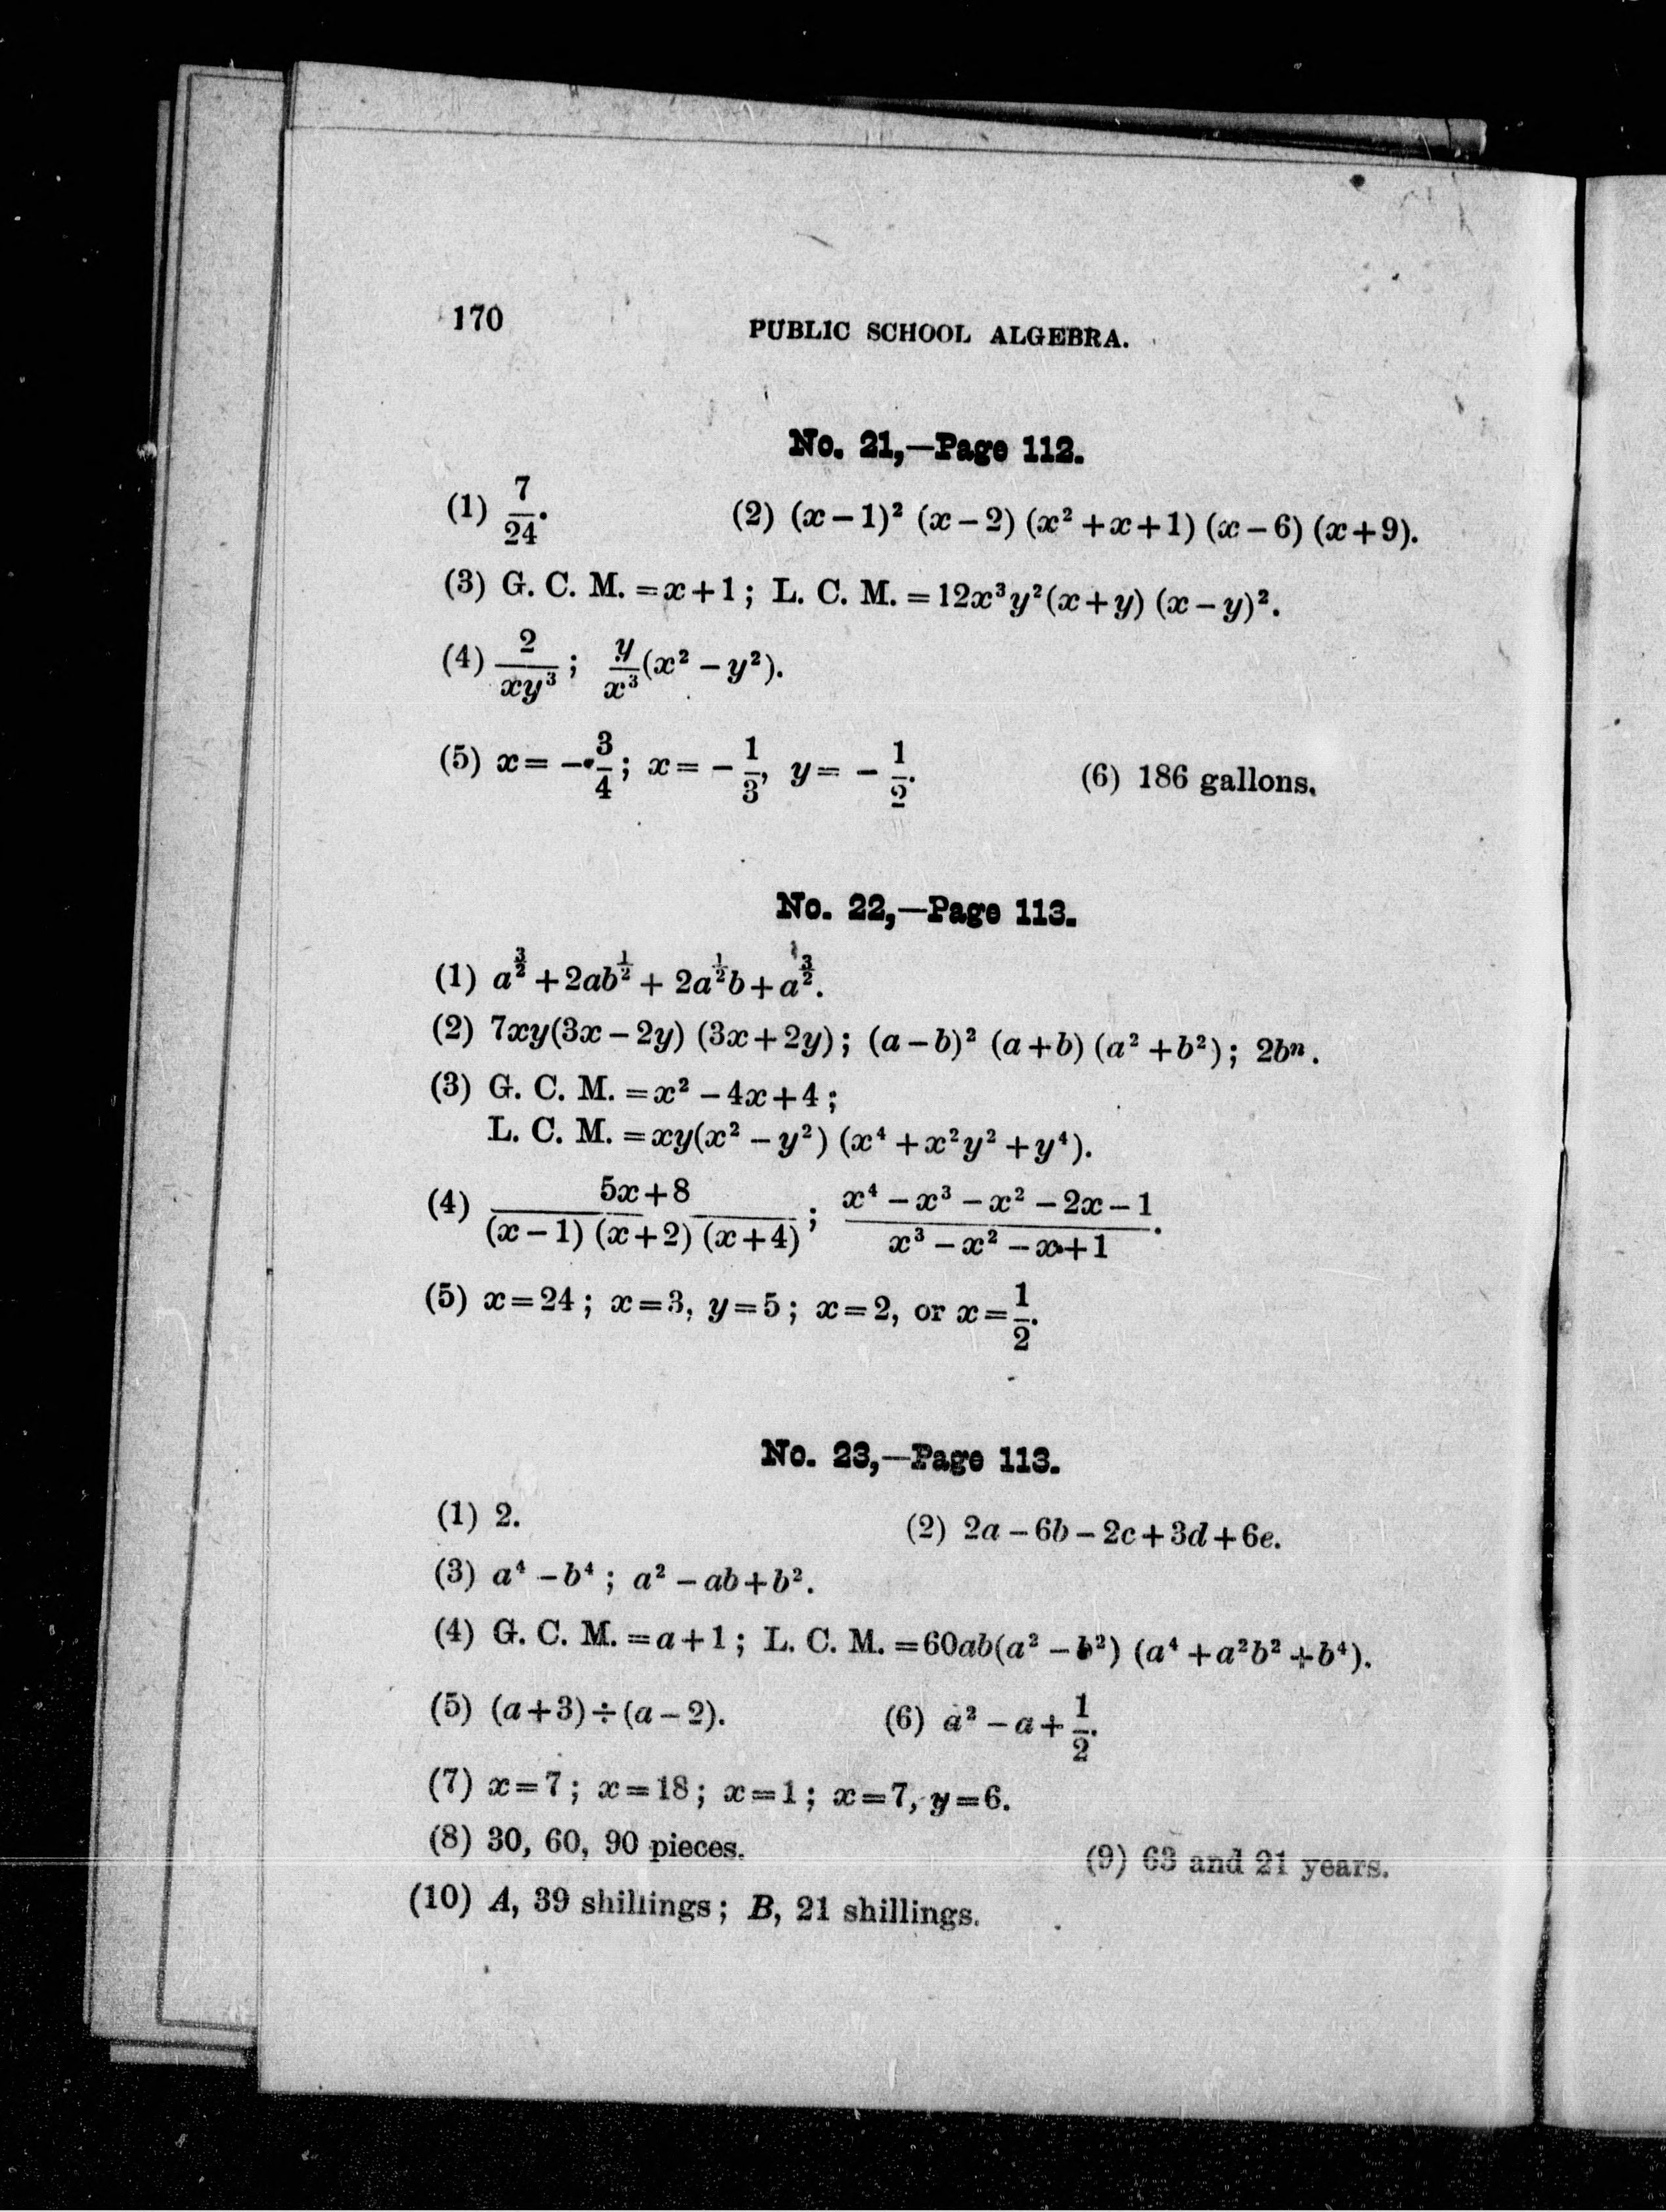 170 PUBLIC SCHOOL ALGEBRA.
No. 21,—Page 112.
(1) 7/24. (2) (x−1)² (x−2) (x²+x+1) (x−6) (x+9).
(3) G. C. M. =x+1; L. C. M. =12x³y²(x+y) (x−y)².
(4) 2/xy³; y/x³(x²−y²).
(5) x= −3/4; x= −1/3, y= −1/2. (6) 186 gallons.
No. 22,—Page 113.
(1) a^(3/2) +2ab^(1/2) + 2a^(1/2)b+a^(3/2).
(2) 7xy(3x−2y) (3x+2y); (a−b)² (a+b) (a²+b²); 2bⁿ.
(3) G. C. M. =x²−4x+4;
L. C. M. =xy(x²−y²) (x⁴+x²y²+y⁴).
(4) (5x+8)/((x−1) (x+2) (x+4)); (x⁴−x³−x²−2x−1)/(x³−x²−x+1).
(5) x=24; x=3, y=5; x=2, or x=1/2.
No. 23,—Page 113.
(1) 2. (2) 2a−6b−2c+3d+6e.
(3) a⁴−b⁴; a²−ab+b².
(4) G. C. M. =a+1; L. C. M. =60ab(a²−b²) (a⁴+a²b²+b⁴).
(5) (a+3)÷(a−2). (6) a²−a+1/2.
(7) x=7; x=18; x=1; x=7, y=6.
(8) 30, 60, 90 pieces. (9) 63 and 21 years.
(10) A, 39 shillings; B, 21 shillings.